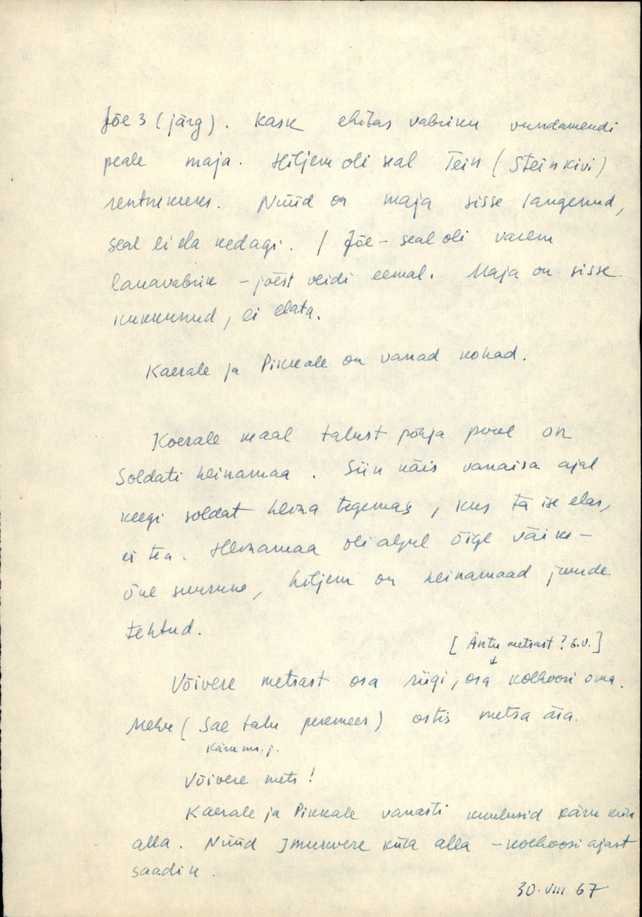 Jõe 3 (järg). Kask ehitas vabriku vundamendi
peale maja. Hiljem oli seal Tein (Steinkivi)
rentnikuks. Nüüd on maja sisse langenud,
seal ei ela kedagi. / Jõe - seal oli varem
lauavabrik - jõest veidi eemal. Maja on sisse
kukkunud, ei elata.
Kaerale ja Pikkale on vanad kohad.
Koerale maal talust põhja pool on
Soldati heinamaa. Siin käis vanaisa ajal
keegi soldat heina tegemas, kus ta ise elas,
ei tea. Heinamaa oli algul õige väike -
õue suurune, hiljem on heinamaad juurde
tehtud.
[Äntu metsast? E.V.]
Võivere metsast osa riigi, osa kolhoosi oma.
Mehe (Sae talu peremees) ostis metsa ära.
Käru mõ. j.
Võivere mets!
Kaerale ja Pikkale vanasti kuulusid Käru küla
alla. Nüüd Imukvere küla alla - kolhoosi ajast
saadik.
30. VIII 67